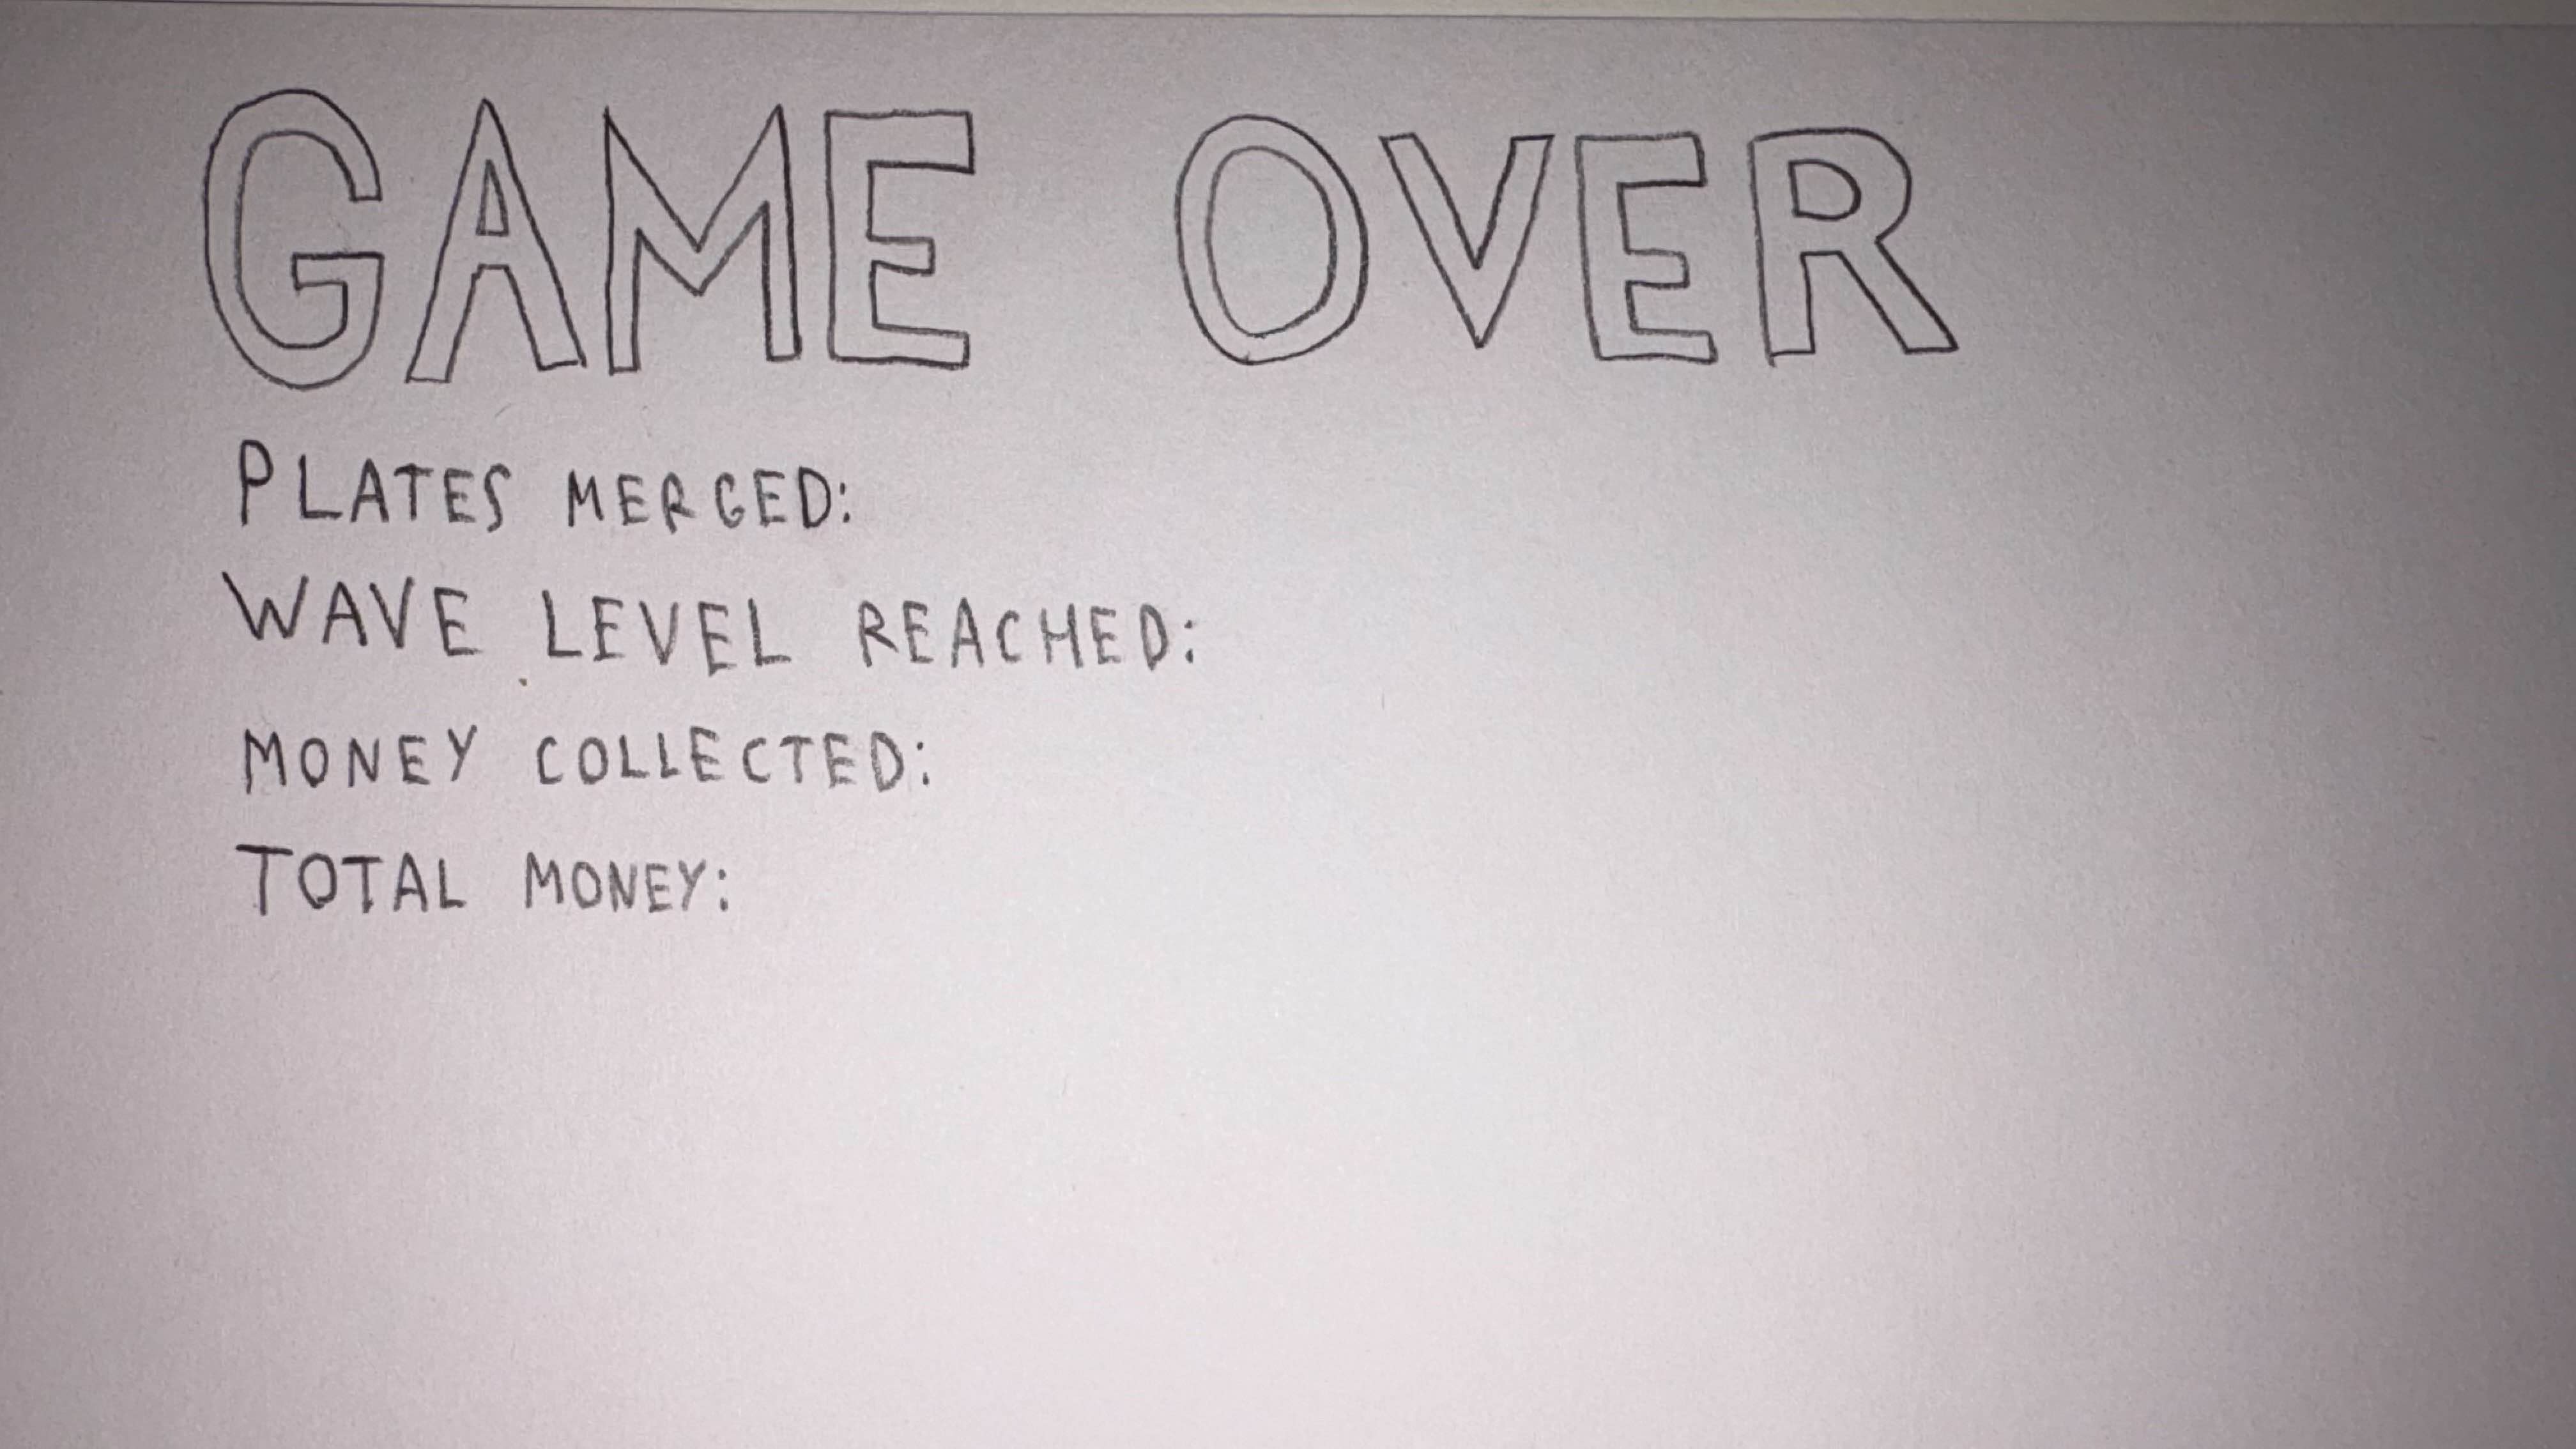 GAME OVER
PLATES MERGED:
WAVE LEVEL REACHED:
MONEY COLLECTED:
TOTAL MONEY: